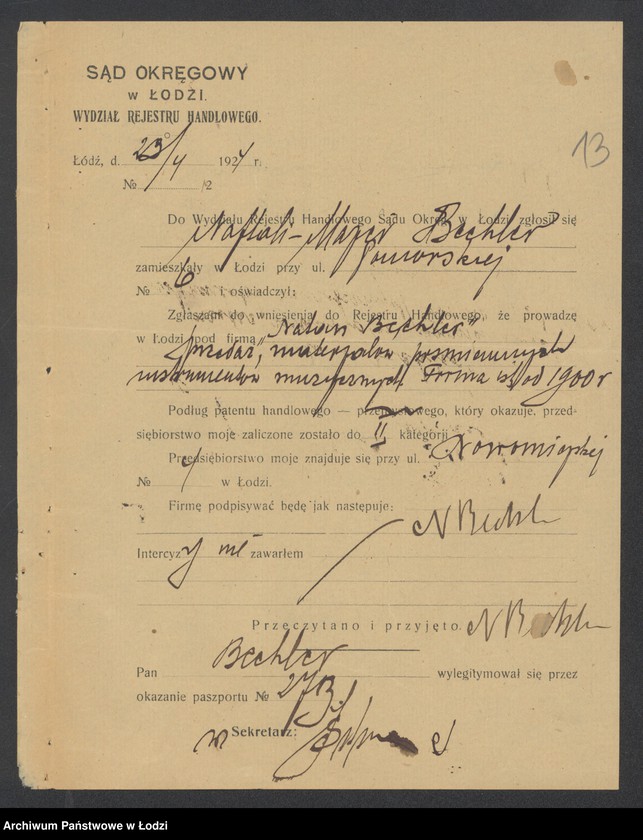 SĄD OKRĘGOWY
w ŁODZI.
WYDZIAŁ REJESTRU HANDLOWEGO.
13
Łódź, d. 23/4 1924 r.
№ /2
Do Wydziału Rejestru Handlowego Sądu Okręg. w Łodzi zgłosił się
Naftali-Majer Bechler
zamieszkały w Łodzi przy ul. Pomorskiej
№ 6 i oświadczył:
Zgłaszam do wniesienia do Rejestru Handlowego, że prowadzę
w Łodzi pod firmą „Natan Bechler"
sprzedaż materjałów piśmiennych
instrumentów muzycznych. Firma ist. od 1900 r
Podług patentu handlowego — przemysłowego, który okazuje, przed-
siębiorstwo moje zaliczone zostało do II kategorji
Przedsiębiorstwo moje znajduje się przy ul. Nowomiejskiej
№ 4 w Łodzi.
Firmę podpisywać będę jak następuje:
N Bechler
Intercyzy nie zawarłem
Przeczytano i przyjęto. N Bechler
Pan Bechler wylegitymował się przez
okazanie paszportu №
w Sekretarz:
Archiwum Państwowe w Łodzi